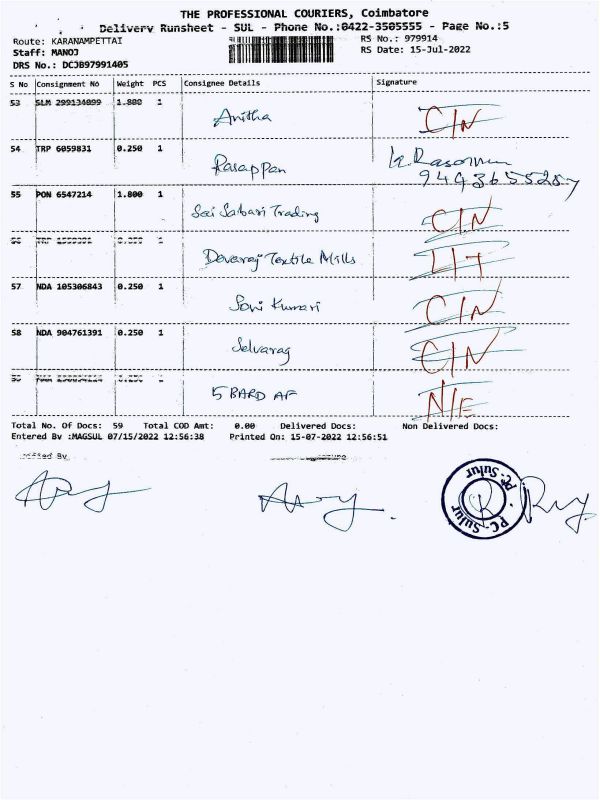 THE PROFESSIONAL COURIERS, Coimbatore
Delivery Runsheet - SUL - Phone No.:0422-3505555 - Page No.:5
Route: KARANAMPETTAI RS No.: 979914
Staff: MANOJ RS Date: 15-Jul-2022
DRS No.: DCJB97991405
S No Consignment No Weight PCS Consignee Details Signature
53 SLM 299134099 1.800 1
Anitha C/N
54 TRP 6059831 0.250 1
Rasappan
55 PON 6547214 1.800 1
Sai Sabari Trading C/N
Devaraj Textile Mills
57 NDA 105306843 0.250 1
Soni Kumari C/N
58 NDA 904761391 0.250 1
Selvarag C/N
5 BARD AF N/E
Total No. Of Docs: 59 Total COD Amt: 0.00 Delivered Docs: Non Delivered Docs:
Entered By :MAGSUL 07/15/2022 12:56:38 Printed On: 15-07-2022 12:56:51
PC-Sulur
PC-Sulur